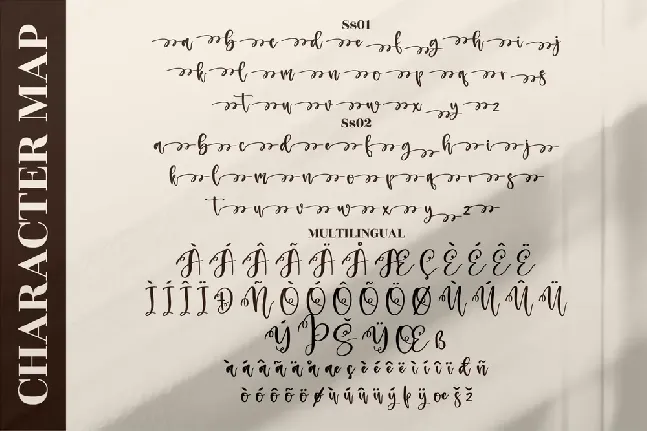 CHARACTER MAP
Ss01
a b c d e f g h i j
k l m n o p q r s
t u v w x y z
Ss02
a b c d e f g h i j
k l m n o p q r s
t u v w x y z
MULTILINGUAL
À Á Â Ã Ä Å Æ Ç È É Ê Ë
Ì Í Î Ï Ð Ñ Ò Ó Ô Õ Ö Ø Ù Ú Û Ü
Ý Þ Š Ÿ Œ ß
à á â ã ä å æ ç è é ê ë ì í î ï đ ñ
ò ó ô õ ö ø ù ú û ü ý þ ÿ œ š ž